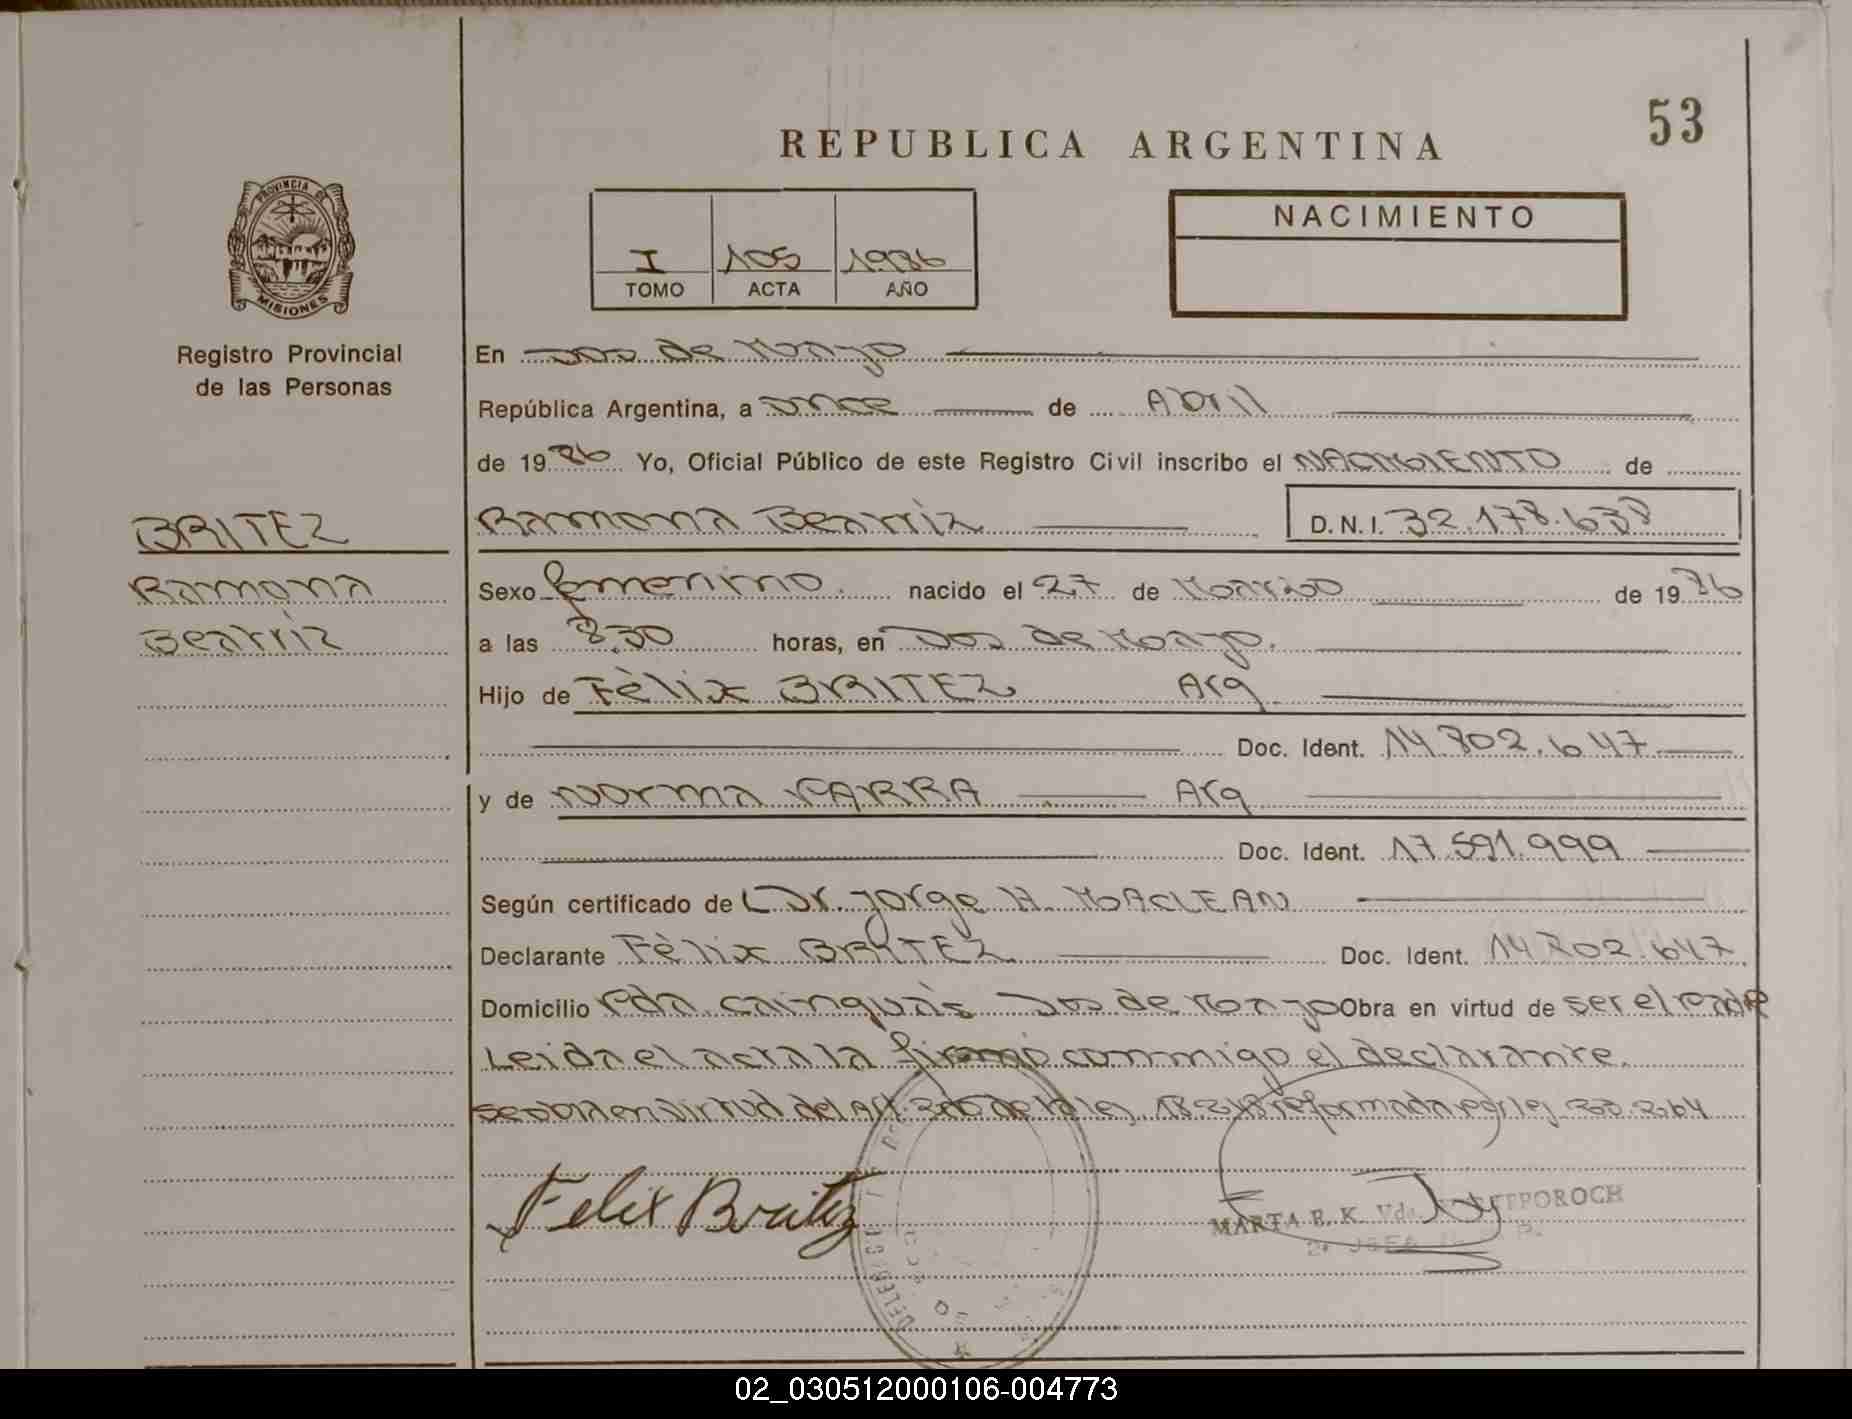 53
REPUBLICA ARGENTINA
PROVINCIA DE
MISIONES
I 105 1986
TOMO ACTA AÑO
NACIMIENTO
Registro Provincial
de las Personas
En Dos de Mayo
República Argentina, a once de Abril
de 1986 Yo, Oficial Público de este Registro Civil inscribo el NACIMIENTO de
BRITEZ
Ramona Beatriz D.N.I. 32.178.638
Ramona
Beatriz
Sexo femenino. nacido el 27 de Marzo de 1986
a las 8.30 horas, en Dos de Mayo.
Hijo de Fèlix BRITEZ Arg
Doc. Ident. 14.702.647
y de Norma PARRA Arg
Doc. Ident. 17.591.999
Según certificado de Dr. Jorge H. MACLEAN
Declarante Fèlix BRITEZ Doc. Ident. 14.702.647
Domicilio Pda. cainguàs Dos de Mayo Obra en virtud de ser el Padre
Leida el acta la firmó conmigo el declarante.
del Art. de la ley 18.248 reformada por ley
Felix Britez
MARTA E. K. Vda.
DELEGACION
02_030512000106-004773